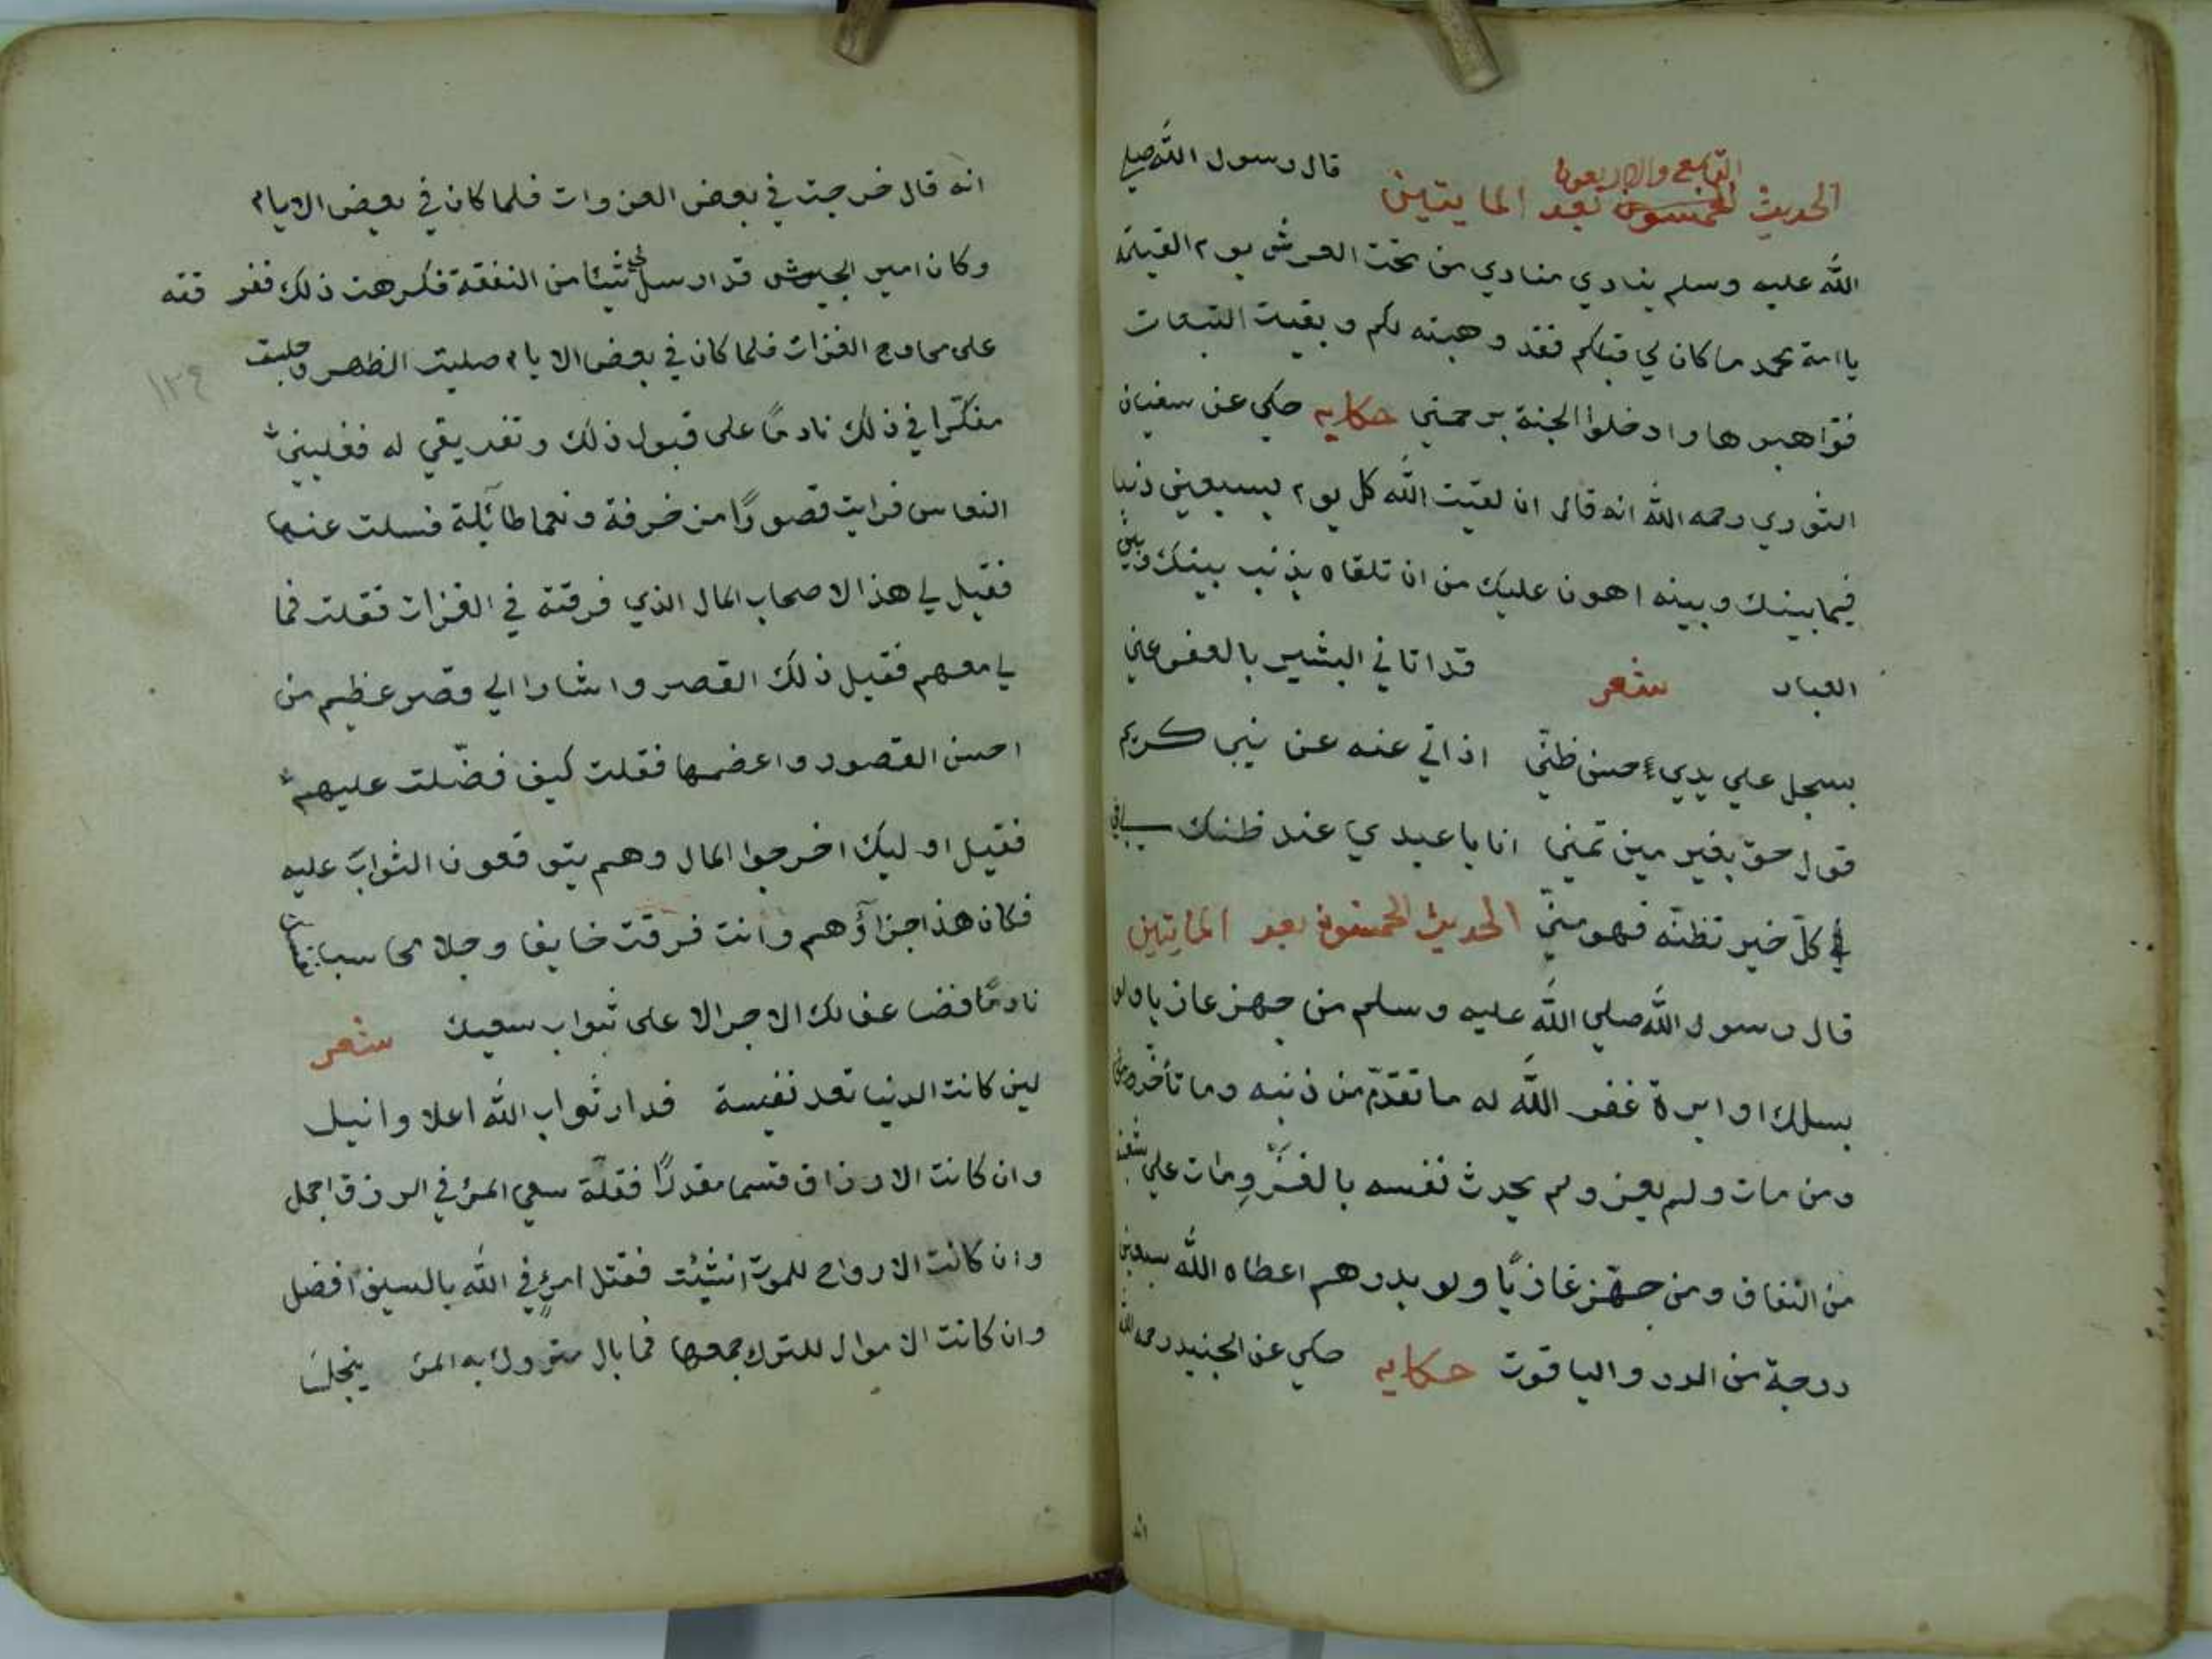 الحديث التاسع والاربعون بعد المايتين قال رسول الله صلي
الله عليه وسلم ينادي منادي من تحت العرش يوم القيمة
يا امة محمد ما كان لي قبلكم فقد وهبته لكم وبقيت التبعات
فتواهبوها وادخلوا الجنة برحمتي حكايه حكي عن سفيان
الثوري رحمه الله انه قال ان لقيت الله كل يوم بسبعين ذنبا
فيما بينك وبينه اهون عليك من ان تلقاه بذنب بينك وبين
العباد شعر قد اتاني البشير بالعفو عني
بسجل علي يدي حسن ظني اذ اتي عنه عن نبي كريم
قول حق بغير مين تمني انا يا عبدي عند ظنك بي
في كل خير تظنه فهو مني الحديث الخمسون بعد المايتين
قال رسول الله صلي الله عليه وسلم من جهز غازيا ولو
بسلك او ابرة غفر الله له ما تقدم من ذنبه وما تأخر ومن
ومن مات ولم يغز ولم يحدث نفسه بالغزو مات علي شعبة
من النفاق ومن جهز غازيا ولو بدرهم اعطاه الله سبعين
درجة من الدر والياقوت حكايه حكي عن الجنيد رحمه الله
انه
انه قال خرجت في بعض الغزوات فلما كان في بعض الايام
وكان امير الجيوش قد ارسل لي شيئا من النفقة فكرهت ذلك ففرقته
على محاوج الغزات فلما كان في بعض الايام صليت الظهر وجلست
مفكرا في ذلك نادما على قبول ذلك وتفريقي له فغلبني
النعاس فرايت قصورا مزخرفة ونعما طائلة فسلت عنها
فقيل لي هذا لاصحاب المال الذي فرقته في الغزات فقلت فما
لي معهم فقيل ذلك القصر واشاروا الي قصر عظيم من
احسن القصور واعضمها فقلت كيف فضلت عليهم
فقيل اوليك اخرجوا المال وهم يتوقعون الثواب عليه
فكان هذا جزاؤهم وانت فرقت خايفا وجلا محاسبا
نادما فضاعف لك الاجر الا على ثواب سعيك شعر
لين كانت الدنيا تعد نفيسة فدار ثواب الله اعلا وانبل
وان كانت الارزاق قسما مقدرا فقلة سعي المرء في الرزق اجمل
وان كانت الارواح للموت انشيت فقتل امرئ في الله بالسيف افضل
وان كانت الاموال للترك جمعها فما بال متروك به المرء يبخل
١٣٤